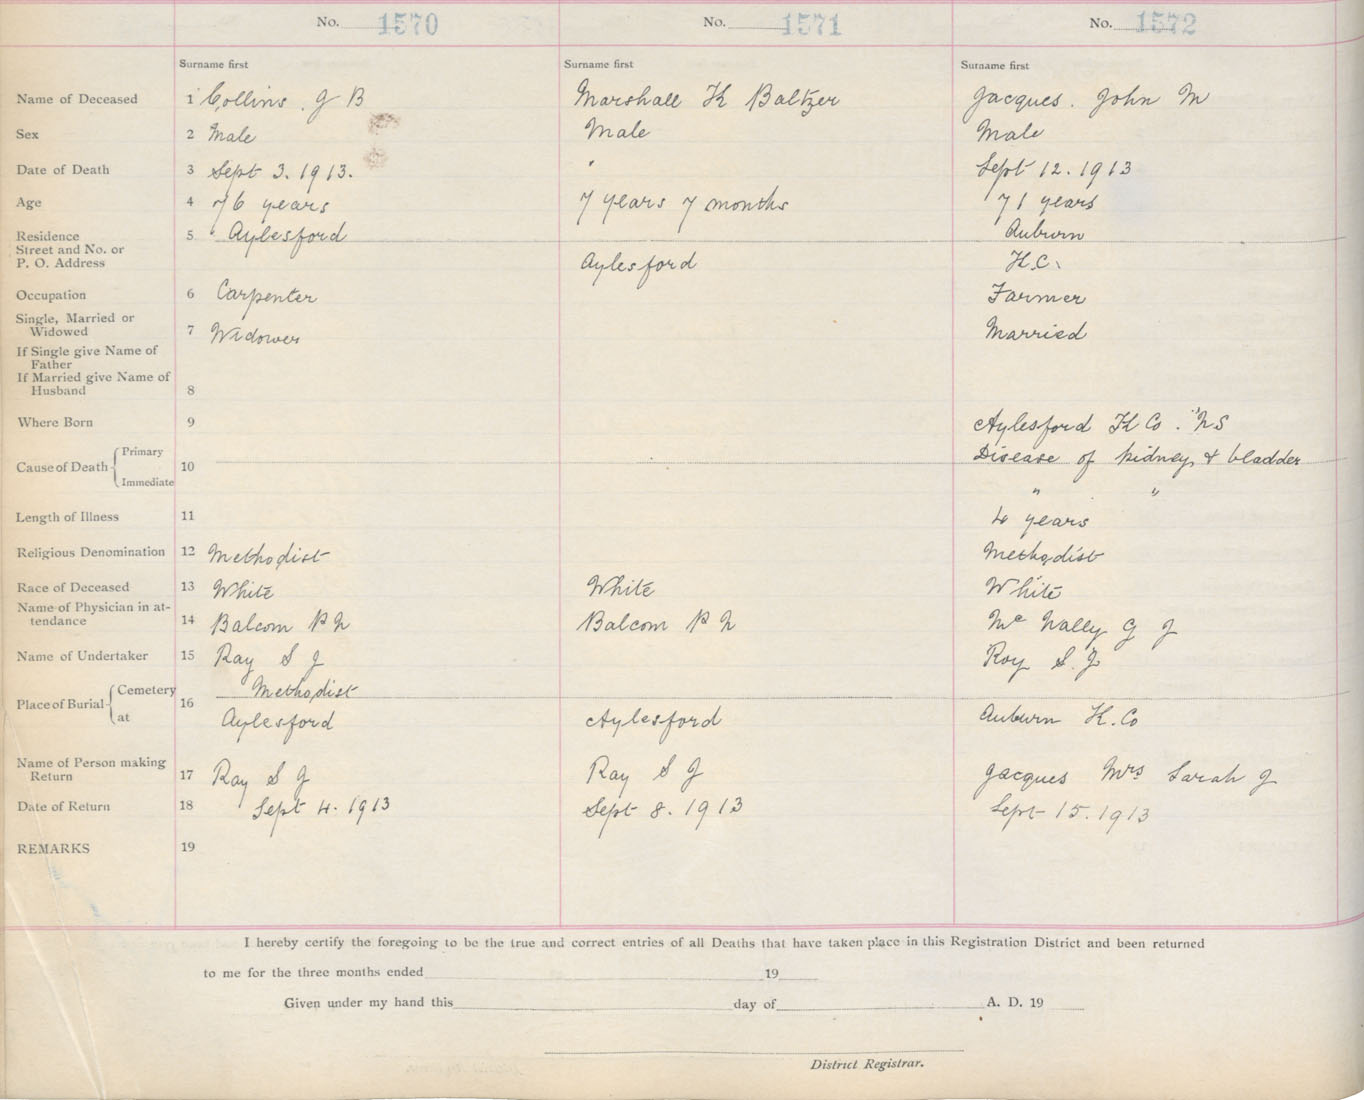 No. 1570 No. 1571 No. 1572
Surname first Surname first Surname first
Name of Deceased 1 Collins . J B Marshall K Baltzer Jacques . John M
Sex 2 Male Male Male
Date of Death 3 Sept 3. 1913. " Sept 12. 1913
Age 4 76 years 7 years 7 months 71 years
Residence 5 " Aylesford Auburn
Street and No. or
P. O. Address Aylesford K.C.
Occupation 6 Carpenter Farmer
Single, Married or
Widowed 7 Widower Married
If Single give Name of
Father
If Married give Name of
Husband 8
Where Born 9 Aylesford K Co . NS
Cause of Death { Primary 10 Disease of kidney & bladder
Immediate " "
Length of Illness 11 4 years
Religious Denomination 12 Methodist Methodist
Race of Deceased 13 White White White
Name of Physician in at-
tendance 14 Balcom P N Balcom P N Mc Nally G J
Name of Undertaker 15 Ray S J Roy S. J
Place of Burial { Cemetery 16 Methodist
at Aylesford Aylesford Auburn K. Co
Name of Person making
Return 17 Ray S J Ray S J Jacques Mrs Sarah J
Date of Return 18 Sept 4. 1913 Sept 8. 1913 Sept 15. 1913
REMARKS 19
I hereby certify the foregoing to be the true and correct entries of all Deaths that have taken place in this Registration District and been returned
to me for the three months ended 19
Given under my hand this day of A. D. 19
District Registrar.